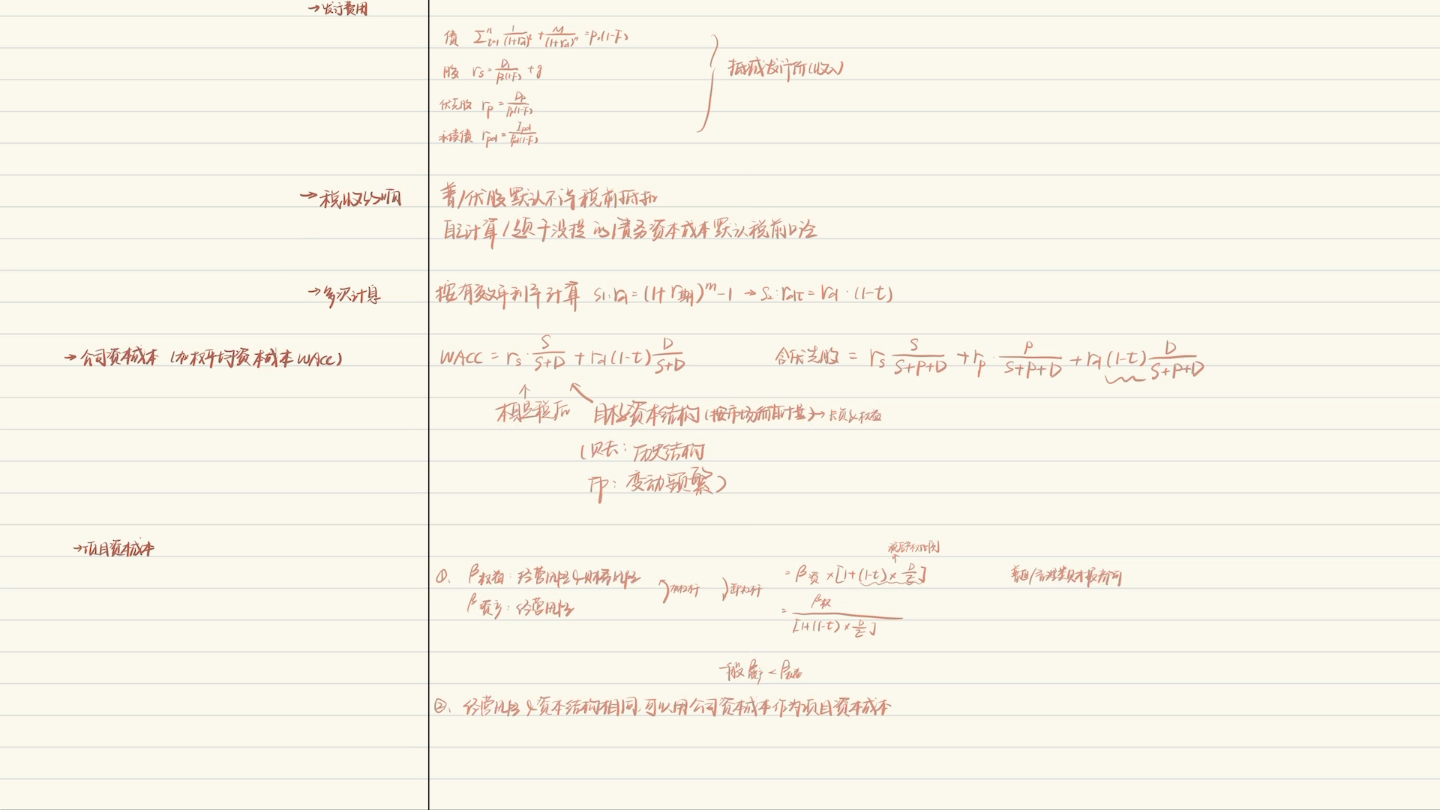 →发行费用
债 Σⁿₜ₌₁ I/(1+rd)ᵗ + M/(1+rd)ⁿ = P₀(1-F)
股 rs = D₁/P₀(1-F) + g
优先股 rp = Dp/Pp(1-F)
永续债 rpd = Ipd/Ppd(1-F)
抵减发行所得(收入)
→税收影响
普/优股默认不考虑税前抵扣
自己计算/题干没提的债务资本成本默认税前口径
→多次计息 按有效年利率计算 S₁:rd = (1+r期)ᵐ-1 → S₂:rdτ = rd·(1-t)
→公司资本成本(加权平均资本成本WACC) WACC = rs·S/(S+D) + rd(1-t)D/(S+D) 含优先股 = rs S/(S+P+D) + rp·P/(S+P+D) + rd(1-t)D/(S+P+D)
↑
目标资本结构(按市场价值计量)→长债&权益
历史结构
变动频繁)
→项目资本成本
①、β权益:经营风险&财务风险 加杠杆 卸杠杆 = β资×[1+(1-t)×D/E]
β资产:经营风险 = β权/[1+(1-t)×D/E]
一般β资产<β权益
②、经营风险&资本结构相同,可以用公司资本成本作为项目资本成本